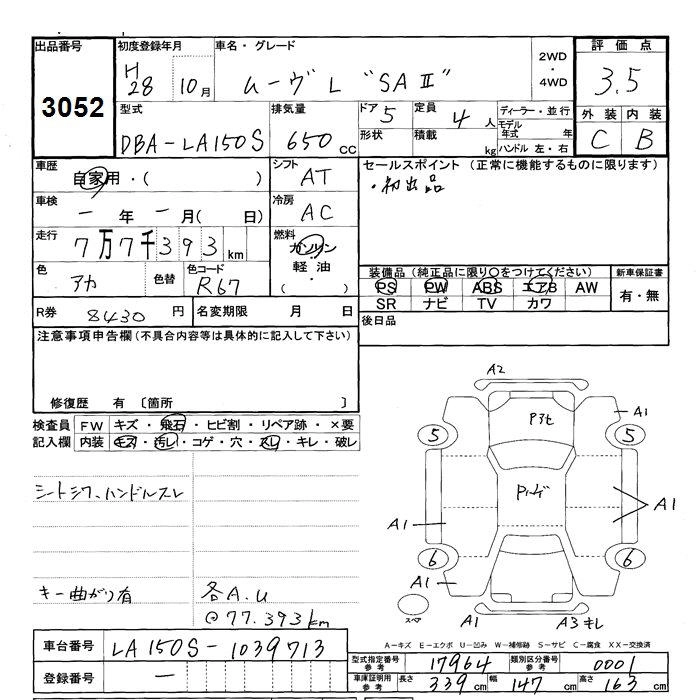 出品番号
3052
初度登録年月
H28 10月
車名・グレード
ムーヴL "SAⅡ"
2WD
・
4WD
評価点
3.5
外装 内装
C B
型式
DBA-LA150S
排気量
650cc
ドア
5
形状
定員
4人
積載
kg
ディーラー・並行
モデル年式 年
ハンドル 左・右
車歴
自家用・( )
シフト
AT
セールスポイント (正常に機能するものに限ります)
・初出品
車検
ー年ー月( 日)
冷房
AC
走行
7万7千393km
燃料
ガソリン
・
軽油
・
( )
色
アカ
色替
色コード
R67
装備品 (純正品に限り○をつけてください)
PS PW ABS エアB AW
SR ナビ TV カワ
新車保証書
有・無
R券
8430円
名変期限 月 日
後日品
注意事項申告欄(不具合内容等は具体的に記入して下さい)
修復歴 有 〔箇所 〕
検査員記入欄
FW キズ・飛石・ヒビ割・リペア跡・×要
内装 キズ・汚レ・コゲ・穴・スレ・キレ・破レ
シートシワ、ハンドルスレ
キー曲がり有
各A.U
@77.393km
A2
Pアセ
A1
5
5
A1
A1
6
6
A1
スペア
A1
A3キレ
A-キズ E-エクボ U-凹み W-補修跡 S-サビ C-腐食 XX-交換済
車台番号
LA150S-1039713
登録番号
ー
型式指定番号
参考
17964
類別区分番号
参考
0001
車庫証明用
参考
長さ 339cm 幅 147cm 高さ 163cm